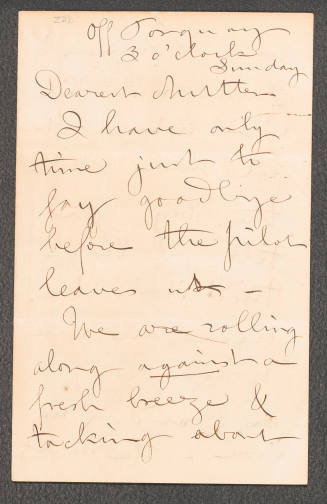 Off Torquay
3 o'clock
Sunday
Dearest Mutter
I have only
time just to
say goodbye
before the pilot
leaves us -
We are rolling
along against a
fresh breeze &
tacking about